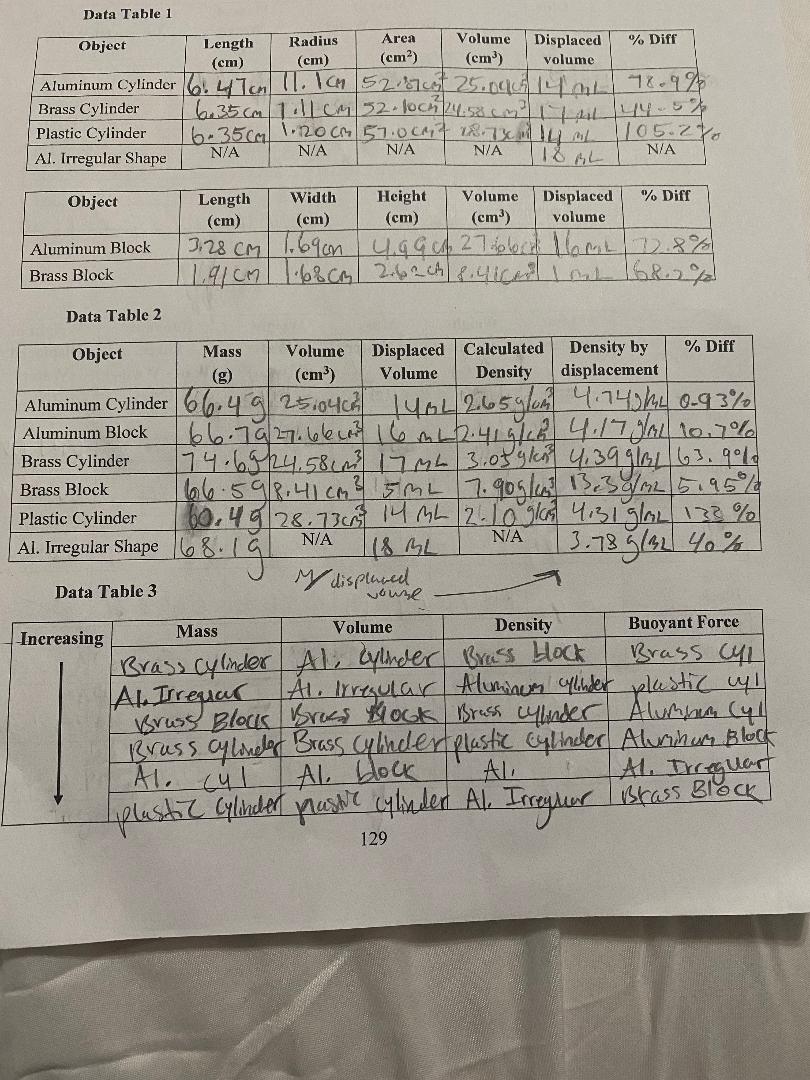 Data Table 1
Object Length (cm) Radius (cm) Area (cm²) Volume (cm³) Displaced volume % Diff
Aluminum Cylinder 6.47cm 11.1cm 52.87cm² 25.04cm³ 14 mL 78.9%
Brass Cylinder 6.35cm 1.11 cm 52.10cm² 24.58 cm³ 17 mL 44.5%
Plastic Cylinder 6.35cm 1.120 cm 57.0cm² 28.73cm³ 14 mL 105.2%
Al. Irregular Shape N/A N/A N/A N/A 18 mL N/A
Object Length (cm) Width (cm) Height (cm) Volume (cm³) Displaced volume % Diff
Aluminum Block 3.28 cm 1.69cm 4.99cm 27.66cm³ 16mL 72.8%
Brass Block 1.91 cm 1.68cm 2.62cm 8.41cm³ 1 mL 68.2%
Data Table 2
Object Mass (g) Volume (cm³) Displaced Volume Calculated Density Density by displacement % Diff
Aluminum Cylinder 66.4g 25.04cm³ 14mL 2.65g/cm³ 4.74g/mL 0.93%
Aluminum Block 66.7g 27.66cm³ 16 mL 2.41g/cm³ 4.17g/mL 10.7%
Brass Cylinder 74.6g 24.58cm³ 17mL 3.03g/cm³ 4.39g/mL 63.9%
Brass Block 66.5g 8.41cm³ 5mL 7.90g/cm³ 13.3g/mL 5.95%
Plastic Cylinder 60.4g 28.73cm³ 14 mL 2.10g/cm³ 4.31g/mL 133%
Al. Irregular Shape 68.1g N/A 18 mL N/A 3.78g/mL 40%
M/displaced
Data Table 3
Increasing Mass Volume Density Buoyant Force
Brass cylinder Al. cylinder Brass block Brass cyl
Al. Irreguar Al. Irregular Aluminum cylinder plastic cyl
Brass Block Brass Block Brass cylinder Aluminum Cyl
Brass cylinder Brass cylinder plastic cylinder Aluminum Block
Al. cyl Al. block Al. Al. Irreguar
plastic cylinder plastic cylinder Al. Irreguar Brass Block
129